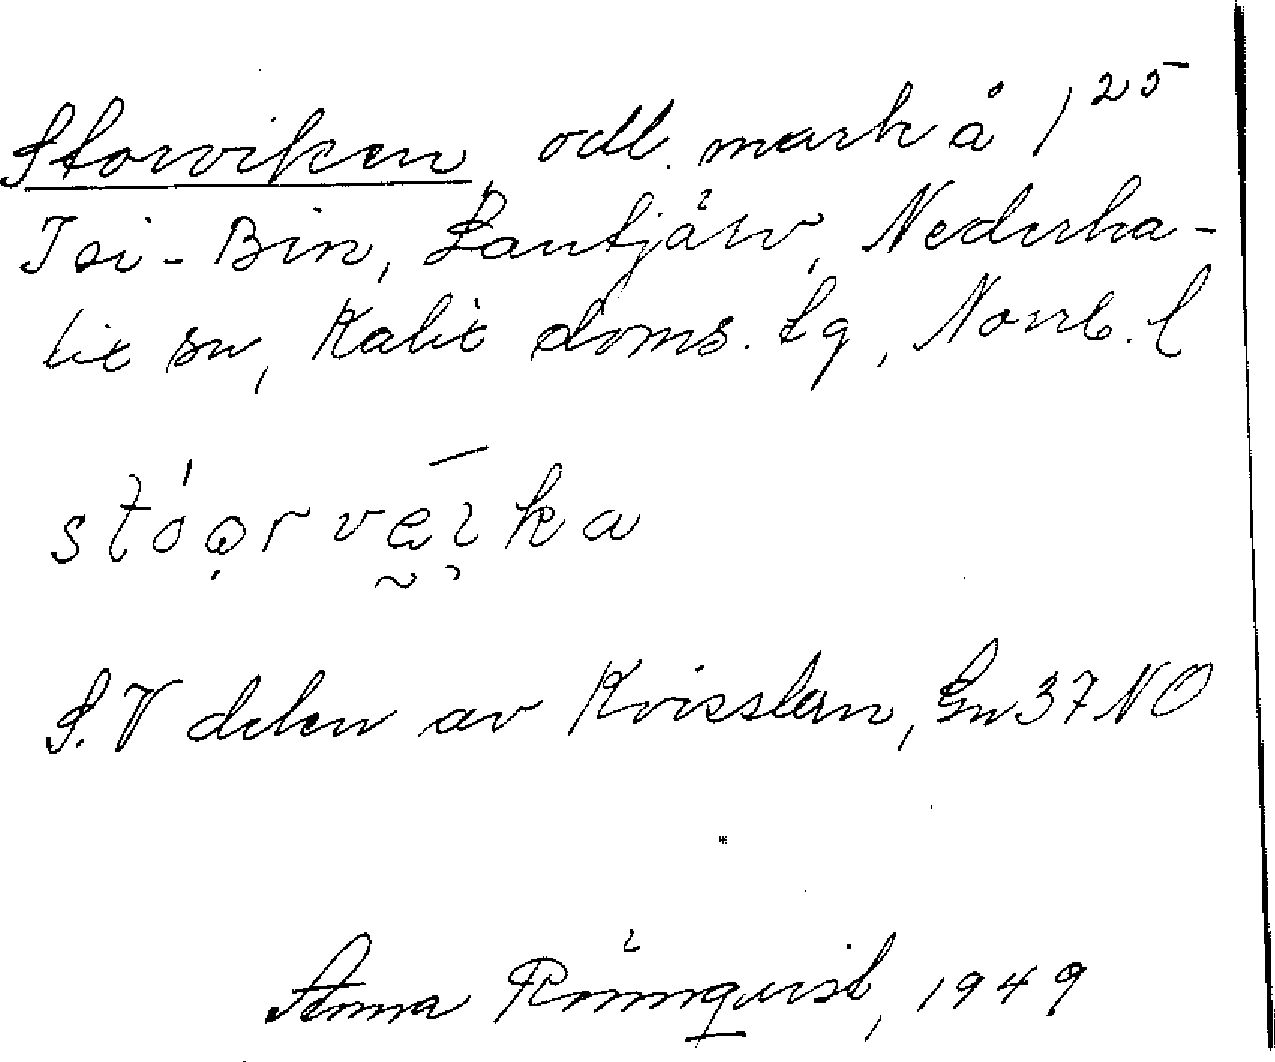 Storviken, odl. mark å 1²⁵
Isi-Bin, Lantjärv, Nederka-
lix sn, Kalix doms. lg, Norrb. l
stóǫr vei ka
S.V delen av Kvisslan, Ln 37 NO
Anna Rönnquist, 1949